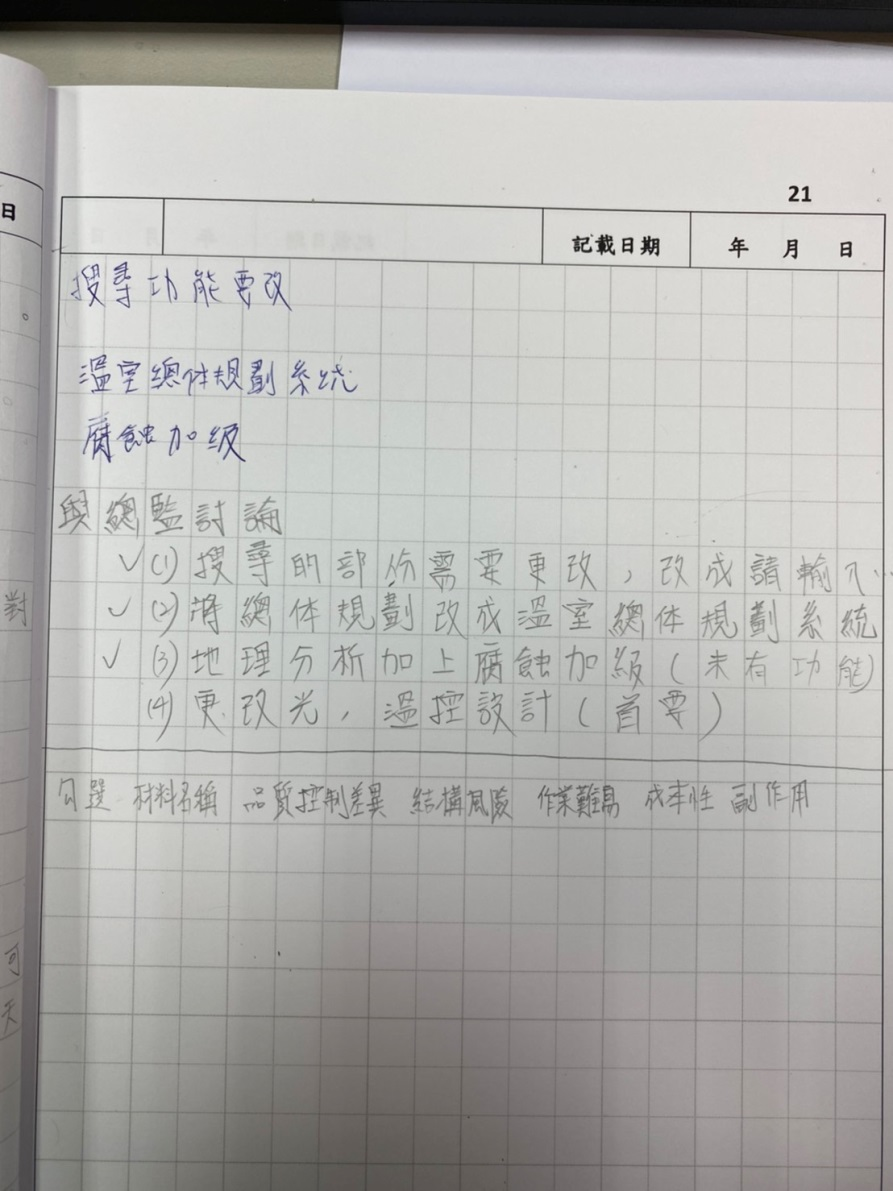 21
日 記載日期 年 月 日
搜尋功能要改
溫室總体規劃系統
腐蝕加級
與總監討論
✓(1) 搜尋的部份需要更改，改成請輸入…
✓(2) 將總体規劃改成溫室總体規劃系統
對
✓(3) 地理分析加上腐蝕加級(未有功能)
(4) 更改光，溫控設計(首要)
勾選 材料名稱 品質控制差異 結構風險 作業難易 成本性 副作用
可
天